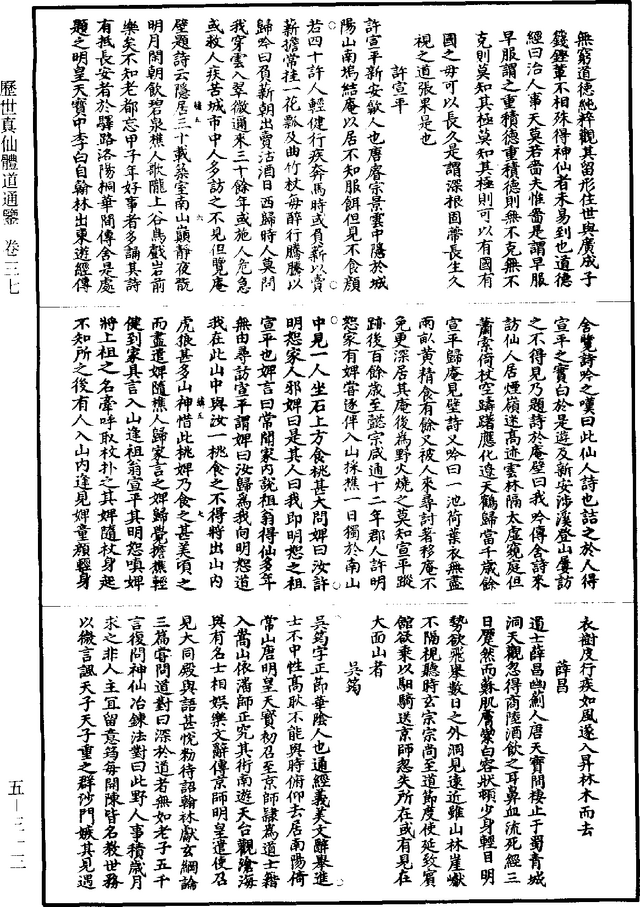 歷世真仙體道通鑒 卷三七
無窮道德純粹觀其留形住世與廣成子
籛鏗輩不相殊得神仙者未易到也道德
經曰治人事天莫若嗇夫惟嗇是謂早服
早服謂之重積德重積德則無不克無不
克則莫知其極莫知其極則可以有國有
國之母可以長久是謂深根固蔕長生久
視之道張果是也
許宣平
許宣平新安歙人也唐睿宗景雲中隱於城
陽山南塢結庵以居不知服餌但見不食顏
若四十許人輕健行疾奔馬時或負薪以賣
薪擔常挂一花瓢及曲竹杖每醉行騰騰以
歸吟曰負薪朝出賣沽酒日西歸時人莫問
我穿雲入翠微邇來三十餘年或施人危急
或救人疾苦城市中人多訪之不見但覽庵
壁題詩云隱居三十載築室南山巔靜夜翫
明月閒朝飲碧泉樵人歌隴上谷鳥戲岩前
樂矣不知老都忘甲子年好事者多誦其詩
有抵長安者於驛路洛陽桐華間傳舍是處
題之明皇天寶中李白自翰林出東遊經傳
舍覽詩吟之嘆曰此仙人詩也詰之於人得
宣平之實白於是遊及新安涉溪登山屢訪
之不得見乃題詩於庵壁曰我吟傳舍詩來
訪仙人居煙嶺迷高迹雲林隔太虛窺庭但
蕭索倚杖空躊躇應化遼天鶴歸當千歲餘
宣平歸庵見壁詩又吟曰一池荷葉衣無盡
兩畝黃精食有餘又被人來尋討著移庵不
免更深居其庵後為野火燒之莫知宣平蹤
跡後百餘歲至懿宗咸通十二年郡人許明
恕家有婢嘗逐伴入山採樵一日獨於南山
中見一人坐石上方食桃甚大問婢曰汝許
明恕家人邪婢曰是其人曰我即明恕之祖
宣平也婢言曰常聞家內說祖翁得仙多年
無由尋訪宣平謂婢曰汝歸為我向明恕道
我在此山中與汝一桃食之不得將出山內
虎狼甚多山神惜此桃婢乃食之甚美頃之
而盡遣婢隨樵人歸家言之婢歸覺擔樵輕
健到家具言入山逢祖翁宣平其明恕嗔婢
將上祖之名牽呼取杖扑之其婢隨杖身起
不知所之後有人入山內逢見婢童顏輕身
衣樹皮行疾如風遂入昇林木而去
薛昌
道士薛昌幽薊人唐天寶間棲止于蜀青城
洞天觀忽得商陸酒飲之耳鼻血流死經三
日蹷然而蘇肌膚瑩白容狀頓少身輕目明
勢欲飛舉數日之外洞見遠近雖山林崖巘
不隔視聽時玄宗崇尚至道節度使延致賓
館欲乘以駟騎送京師忽失所在或有見在
大面山者
吳筠
吳筠字正節華陰人也通經義美文辭舉進
士不中性高耿不能與時俯仰去居南陽倚
常山唐明皇天寶初召至京師隸為道士籍
入嵩山依潘師正究其術南遊天台觀滄海
與有名士相娛樂文辭傳京師明皇遣使召
見大同殿與語甚悅勑待詔翰林獻玄綱論
三篇嘗問道對曰深於道者無如老子五千
言復問神仙冶鍊法對曰此野人事積歲月
求之非人主宜留意筠每開陳皆名教世務
以微言諷天子天子重之群沙門嫉其見遇
五-三一三